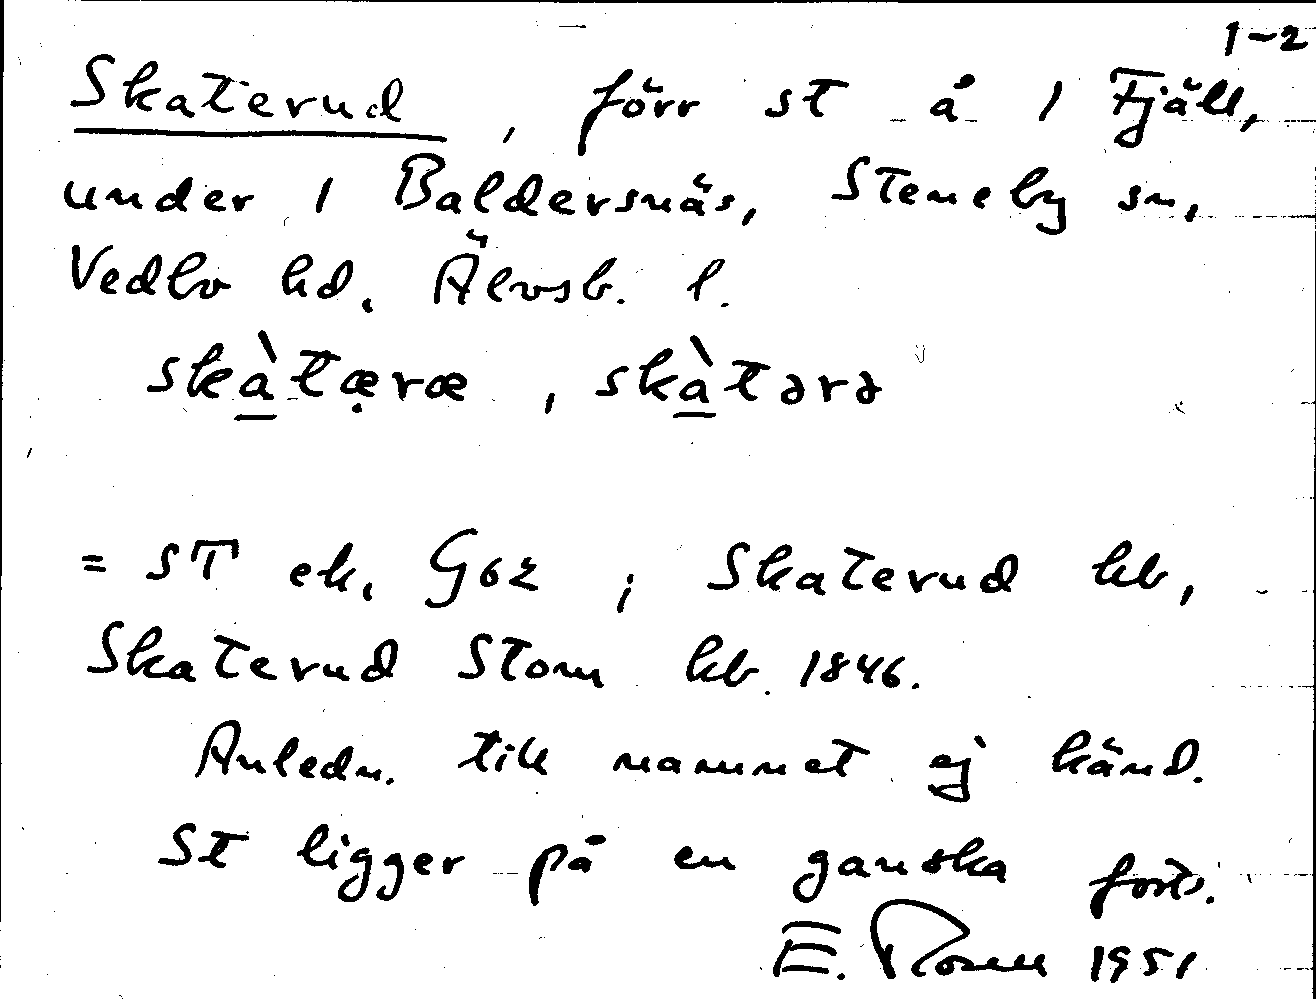 1-2
Skaterud, förr st å 1 Fjäll,
under 1 Baldersnäs, Steneby sn,
Vedbo hd. Älvsb. l.
skàtæræ, skàtərə
= ST ek. G62; Skaterud kb,
Skaterud Stom kb 1846.
Anledn. till namnet ej känd.
St ligger på en ganska forts.
E. Rosell 1951